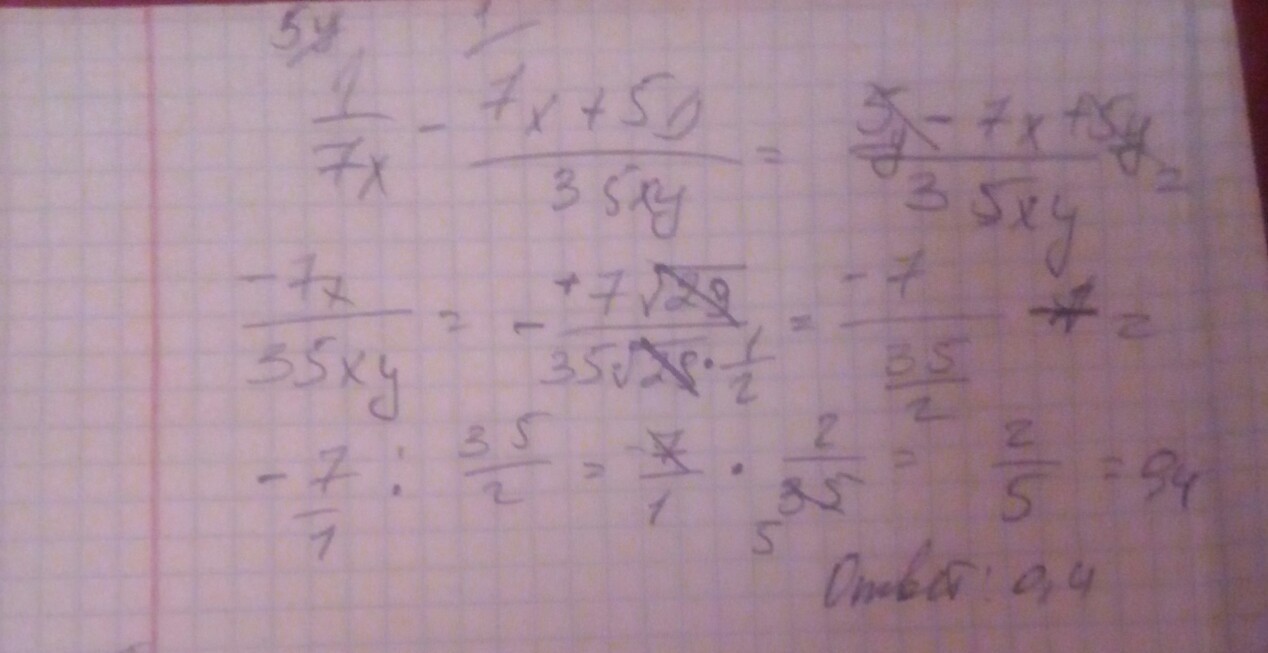 5y 1
1/7x - 7x+5y/35xy = 5y-7x+5y/35xy =
-7x/35xy = - +7√29/35√29·1/2 = -7/35/2 =
-7/1 : 35/2 = -7/1 · 2/35 5 = 2/5 = 0,4
Ответ: 0,4